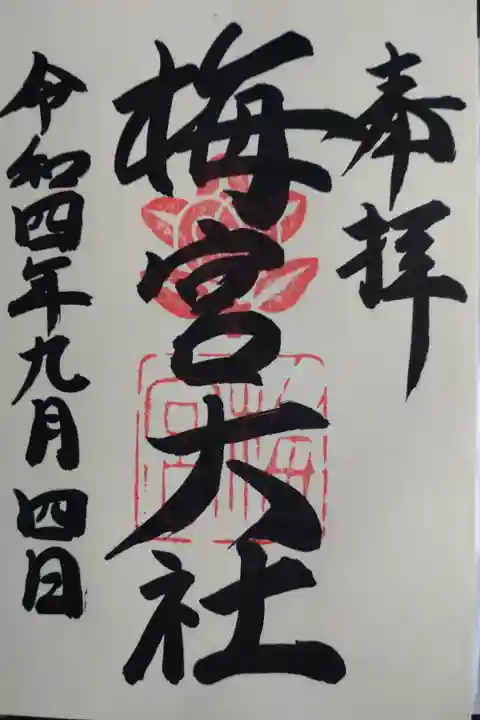 奉拝
梅宮大社
令和四年九月四日